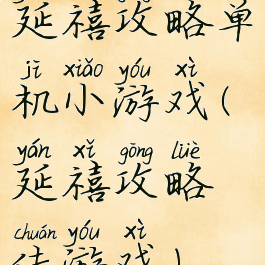 延禧攻略单
jī xiǎo yóu xì
机小游戏(
yán xǐ gōng lüè
延禧攻略
chuán yóu xì
传游戏)